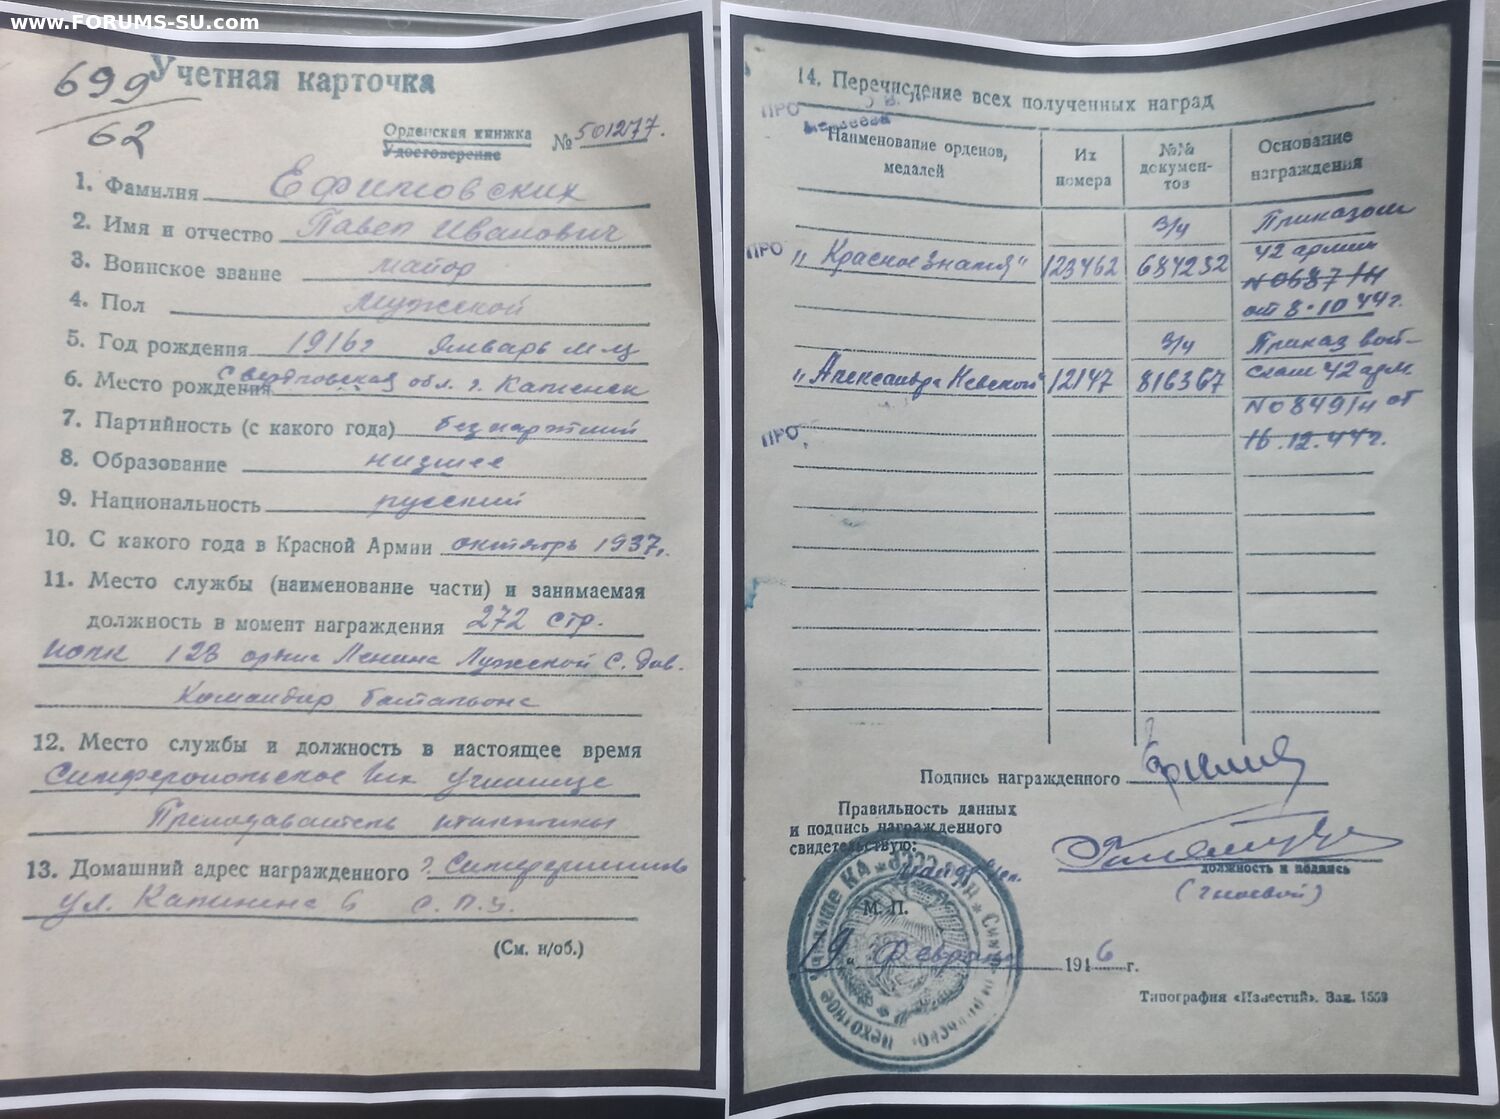 www.FORUMS-SU.com
699
62
Учетная карточка
Орденская книжка
Удостоверение
№ 501277.
1. Фамилия Ефимовских
2. Имя и отчество Павел Иванович
3. Воинское звание майор
4. Пол мужской
5. Год рождения 1916 г январь м-ц
6. Место рождения Свердловская обл. г. Каменск
7. Партийность (с какого года) беспартийный
8. Образование низшее
9. Национальность русский
10. С какого года в Красной Армии октябрь 1937г.
11. Место службы (наименование части) и занимаемая
должность в момент награждения 272 стр.
полк 123 ордена Ленина Лужской С. див.
Командир батальона
12. Место службы и должность в настоящее время
Симферопольское училище
Преподаватель тактики
13. Домашний адрес награжденного г. Симферополь
ул. Калинина 6 С.П.У.
(См. н/об.)
14. Перечисление всех полученных наград
ПРО
Наименование орденов, медалей
Их номера
№№ документов
Основание награждения
в/ч Приказом
ПРО "Красное Знамя" 123462 684232 42 армии
N 0687/н
от 8.10.44г.
в/ч Приказ вой-
"Александра Невского" 12147 816367 скам 42 арм
N 0849/н от
ПРО 16.12.44г.
Подпись награжденного
Правильность данных
и подпись награжденного
свидетельствую:
должность и подпись
М. П.
19 " февраля 1946 г.
Типография «Известий». Зак. 1553